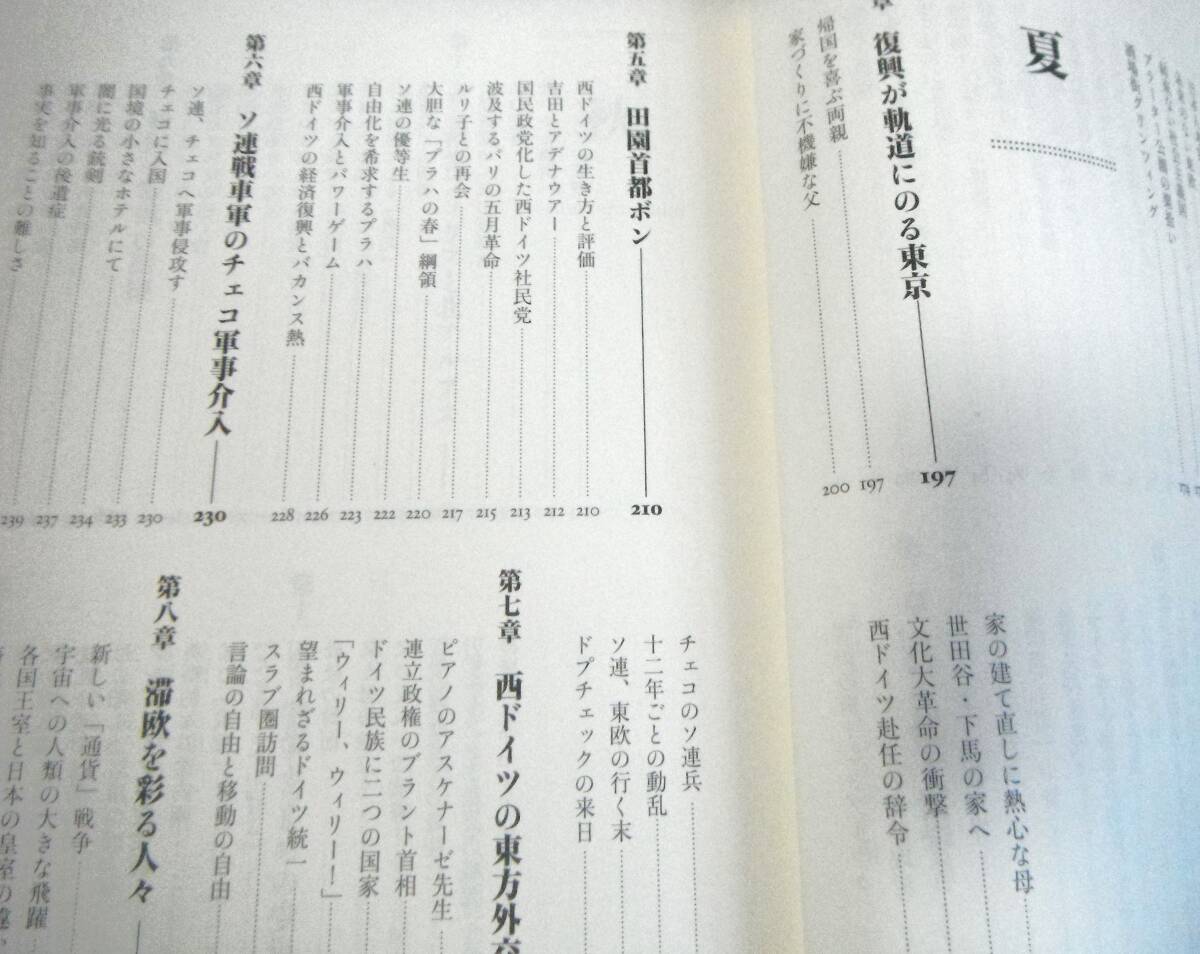 夏
章 復興が軌道にのる東京 197
帰国を喜ぶ両親 197
家づくりに不機嫌な父 200
家の建て直しに熱心な母
世田谷・下馬の家へ
文化大革命の衝撃
西ドイツ赴任の辞令
第五章 田園首都ボン 210
西ドイツの生き方と評価 210
吉田とアデナウアー 212
国民政党化した西ドイツ社民党 213
波及するパリの五月革命 215
ルリ子との再会 217
大胆な「プラハの春」綱領 220
ソ連の優等生 222
自由化を希求するプラハ 223
軍事介入とパワーゲーム 226
西ドイツの経済復興とバカンス熱 228
第六章 ソ連戦車軍のチェコ軍事介入 230
ソ連、チェコへ軍事侵攻す 230
チェコに入国 233
国境の小さなホテルにて 234
闇に光る銃剣 237
軍事介入の後遺症 239
事実を知ることの難しさ
チェコのソ連兵
十二年ごとの動乱
ソ連、東欧の行く末
ドプチェックの来日
第七章 西ドイツの東方外交
ピアノのアスケナーゼ先生
連立政権のブラント首相
ドイツ民族に二つの国家
「ウィリー、ウィリー！」
望まれざるドイツ統一
スラブ圏訪問
言論の自由と移動の自由
第八章 滞欧を彩る人々
新しい「通貨」戦争
宇宙への人類の大きな飛躍
各国王室と日本の皇室の違い